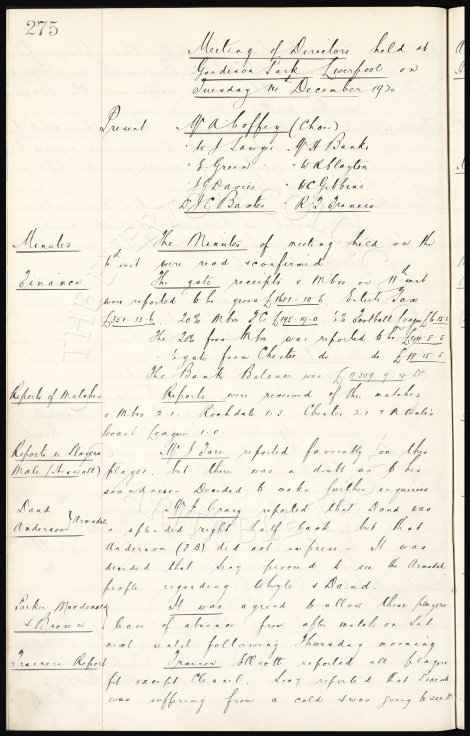 275
Meeting of Directors held at
Goodison Park Liverpool on
Tuesday December 19
Present Mr A Coffey (Chair)
" W J Sawyer Mr H Banks
" E Green " W R Clayton
" J Davies " W C Gibbins
Dr J C Baxter " R Francis
Minutes The Minutes of meeting held on the
6th inst were read & confirmed.
Finance The gate receipts v Mbro on 11th inst
were reported to be gross Enterts Tax
£351-13-6 20% Mbro FC £195-19-0 Football League
The 20% from Mbro was reported to be
" " gate from Chester do do £18-15-5
The Bank Balance was £11,309-9-4 Dr
Reports of Matches Reports were received of the matches
v Mbro 2-1. Rochdale 1-3. Chester 2-1 & N Wales
Coast League 1-0.
Reports re Players Mr J Fare reported favorably on this
Male player, but there was a doubt as to his
soundness - Decided to make further enquiries
Dand Mr J Craig reported that Dand was
Anderson } Armadale a splendid right half back but that
Anderson did not impress - It was
decided that Secy proceed to see the Armadale
people regarding Whyte & Dand.
Parker, Macdonald It was agreed to allow these players
& Brown leave of absence from after match on Sat
next until following Thursday morning
Trainers Report Trainer Elliott reported all players
fit except Clennell. Secy reported that Peacock
was suffering from a cold & was going to see